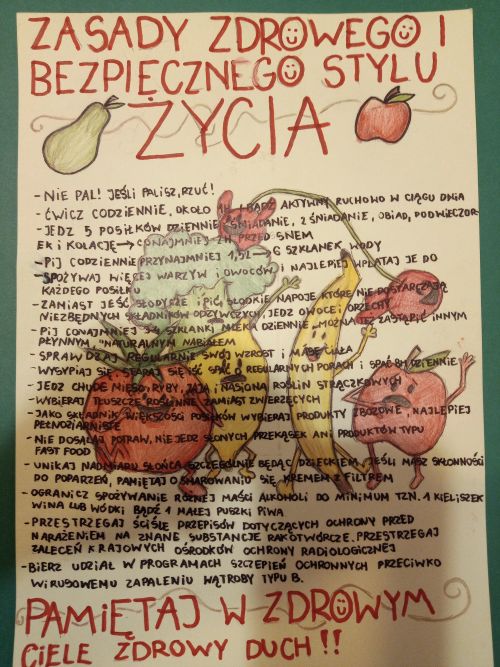 ZASADY ZDROWEGO I
BEZPIECZNEGO STYLU
ŻYCIA
- NIE PAL! JEŚLI PALISZ, RZUĆ!
- ĆWICZ CODZIENNIE, OKOŁO 1H I BĄDŹ AKTYWNY RUCHOWO W CIĄGU DNIA
- JEDZ 5 POSIŁKÓW DZIENNIE: ŚNIADANIE, 2 ŚNIADANIE, OBIAD, PODWIECZOR-
EK I KOLACJĘ → CONAJMNIEJ 2H PRZED SNEM
- PIJ CODZIENNIE PRZYNAJMNIEJ 1,5L → 6 SZKLANEK WODY
- SPOŻYWAJ WIĘCEJ WARZYW I OWOCÓW I NAJLEPIEJ WPLATAJ JE DO
KAŻDEGO POSIŁKU
- ZAMIAST JEŚĆ SŁODYSZE I PIĆ SŁODKIE NAPOJE KTÓRE NIE DOSTARCZAJĄ
NIEZBĘDNYCH SKŁADNIKÓW ODŻYWCZYCH, JEDZ OWOCE I ORZECHY
- PIJ CONAJMNIEJ 3-4 SZKLANKI MLEKA DZIENNIE - MOŻNA JE ZASTĄPIĆ INNYM
PŁYNNYM, "NATURALNYM" NABIAŁEM
- SPRAWDZAJ REGULARNIE SWÓJ WZROST I MASĘ CIAŁA
- WYSYPIAJ SIĘ - STARAJ SIĘ IŚĆ SPAĆ O REGULARNYCH PORACH I SPAĆ 8H DZIENNIE
- JEDZ CHUDE MIĘSO, RYBY, JAJA I NASIONA ROŚLIN STRĄCZKOWYCH
- WYBIERAJ TŁUSZCZE ROŚLINNE ZAMIAST ZWIERZĘCYCH
- JAKO SKŁADNIK WIĘKSZOŚCI POSIŁKÓW WYBIERAJ PRODUKTY ZBOŻOWE, NAJLEPIEJ
PEŁNOZIARNISTE
- NIE DOSALAJ POTRAW, NIE JEDZ SŁONYCH PRZEKĄSEK ANI PRODUKTÓW TYPU
FAST FOOD
- UNIKAJ NADMIARU SŁOŃCA SZCZEGÓLNIE BĘDĄC DZIECKIEM. JEŚLI MASZ SKŁONNOŚCI
DO POPARZEŃ, PAMIĘTAJ O SMAROWANIU SIĘ KREMEM Z FILTREM
- OGRANICZ SPOŻYWANIE RÓŻNEJ MAŚCI ALKOHOLI DO MINIMUM TZN. 1 KIELISZEK
WINA LUB WÓDKI BĄDŹ 1 MAŁEJ PUSZKI PIWA
- PRZESTRZEGAJ ŚCIŚLE PRZEPISÓW DOTYCZĄCYCH OCHRONY PRZED
NARAŻENIEM NA ZNANE SUBSTANCJE RAKOTWÓRCZE. PRZESTRZEGAJ
ZALECEŃ KRAJOWYCH OŚRODKÓW OCHRONY RADIOLOGICZNEJ
- BIERZ UDZIAŁ W PROGRAMACH SZCZEPIEŃ OCHRONNYCH PRZECIWKO
WIRUSOWEMU ZAPALENIU WĄTROBY TYPU B.
PAMIĘTAJ W ZDROWYM
CIELE ZDROWY DUCH!!